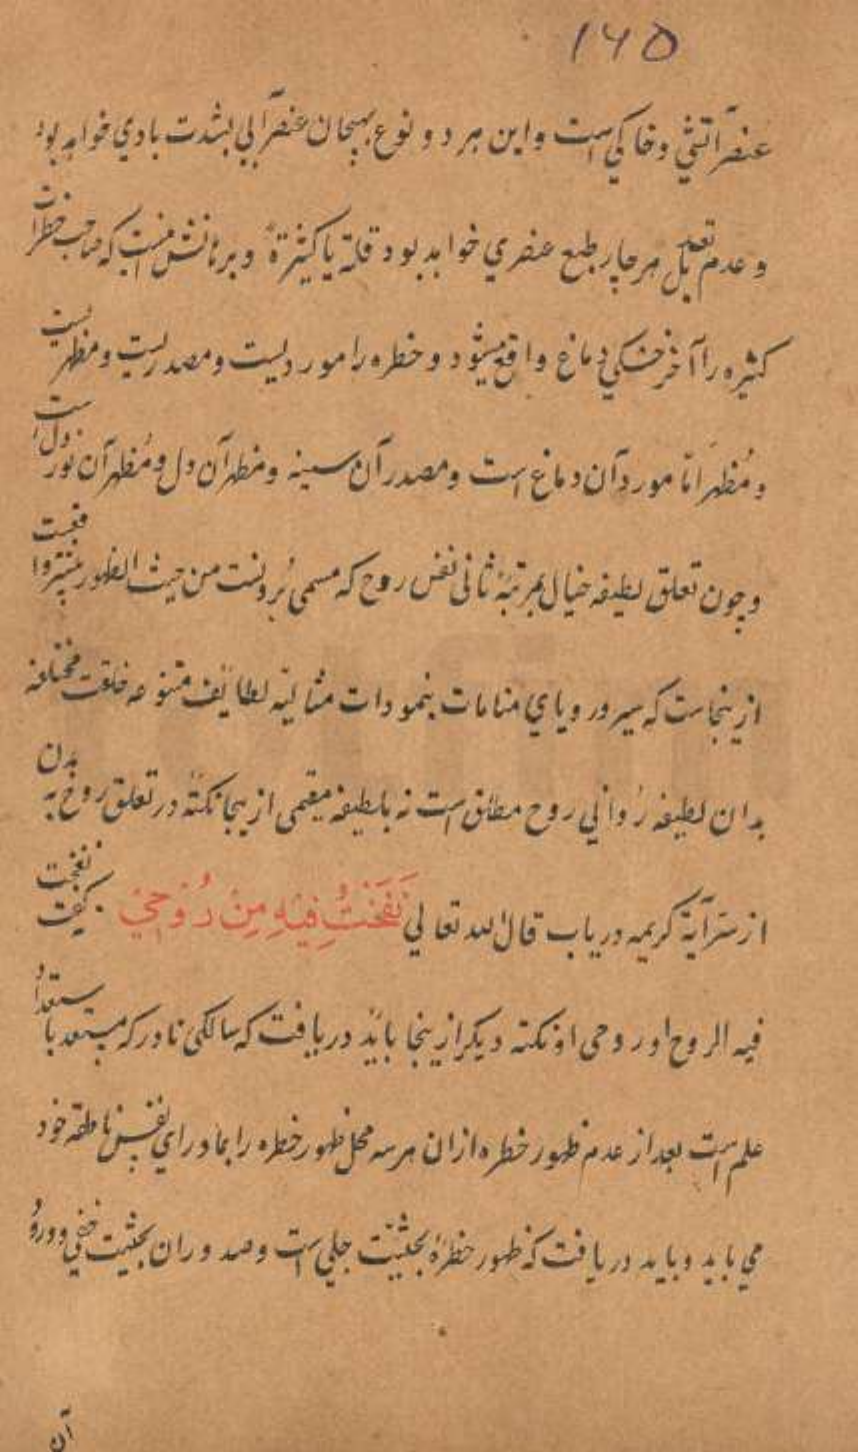 ۱۶۵
عنصر آتشی و خاکی است و این هر دو نوع بهیجان عنصر آبی بشدت بادی خواهد بود
و عدم تعدیل هر چار طبع عنصری خواهد بود قلة یا کثرة و برهانش اینست که صاحب خطرات
کثیره را آخر خشکی دماغ واقع میشود و خطره را موردیست و مصدریست و مظهریست
و مُظهر امّا مورد آن دماغ است و مصدر آن سینه و مظهر آن دل و مُظهر آن نور دل است
و چون تعلق لطیفه خیال بمرتبهٔ ثانی نفس روح که مسمی است من حیث الظهور
ازینجاست که سیر و رویای منامات بنمودات مثالیه لطایف متنوعه خلقت مختلفه
بدان لطیفه روانی روح مطلق است نه بلطیفه مقیمی ازینجا نکتهٔ در تعلق روح به بدن
از سرّ آیة کریمه دریاب قال الله تعالی نَفَخْتُ فِیْهِ مِنْ رُوْحِیْ کیف نفخت
فیه الروح او روحی او نکته دیگر ازینجا باید دریافت که سالکی نادر که مستعد با استعداد
علم است بعد از عدم ظهور خطره ازان هر سه محل ظهور خطره را بماورای نفس ناطقه خود
می یابد و باید دریافت که ظهور خطرهٔ بحثیّت جلی است و صدور آن بحثیت خفی و ورود
آن